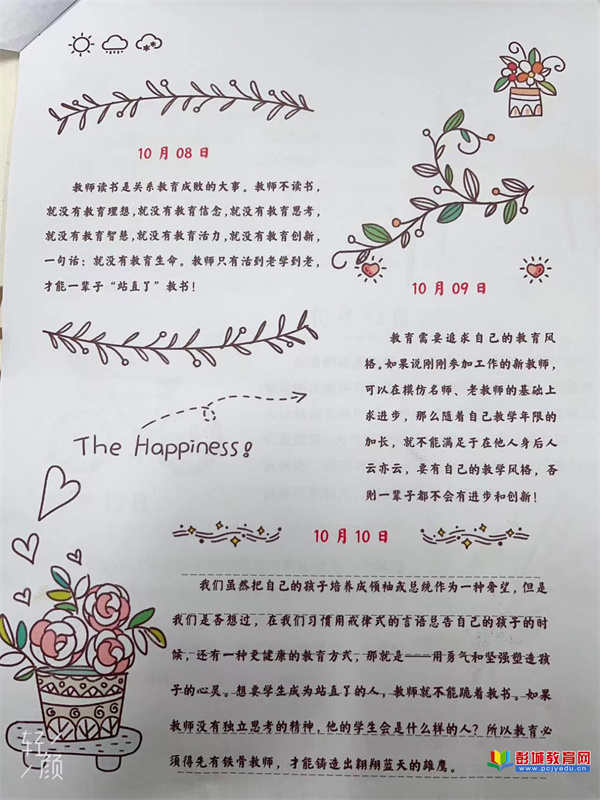 10月08日
教师读书是关系教育成败的大事。教师不读书，
就没有教育理想，就没有教育信念，就没有教育思考，
就没有教育智慧，就没有教育活力，就没有教育创新，
一句话：就没有教育生命。教师只有活到老学到老，
才能一辈子“站直了”教书！
10月09日
教育需要追求自己的教育风
格。如果说刚刚参加工作的新教师，
可以在模仿名师、老教师的基础上
求进步，那么随着自己教学年限的
加长，就不能满足于在他人身后人
云亦云，要有自己的教学风格，否
则一辈子都不会有进步和创新！
The Happiness!
10月10日
我们虽然把自己的孩子培养成领袖或总统作为一种奢望，但是
我们是否想过，在我们习惯用戒律式的言语忠告自己的孩子的时
候，还有一种更健康的教育方式，那就是——用勇气和坚强塑造孩
子的心灵。想要学生成为站直了的人，教师就不能跪着教书。如果
教师没有独立思考的精神，他的学生会是什么样的人？所以教育必
须得先有铁骨教师，才能铸造出翱翔蓝天的雄鹰。
轻颜
彭城教育网
www.pcjyedu.cn